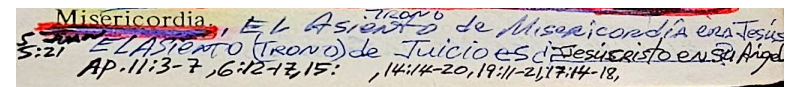 Misericordia., EL Asiento de Misericordia era Jesús
TRONO
5 JUAN EL ASiENTO (TRONO) de Juicio es Jesuscristo en su Angel
5:21
Ap. 11:3-7, 6:12-17, 15: , 14:14-20, 19:11-21, 17:14-18,